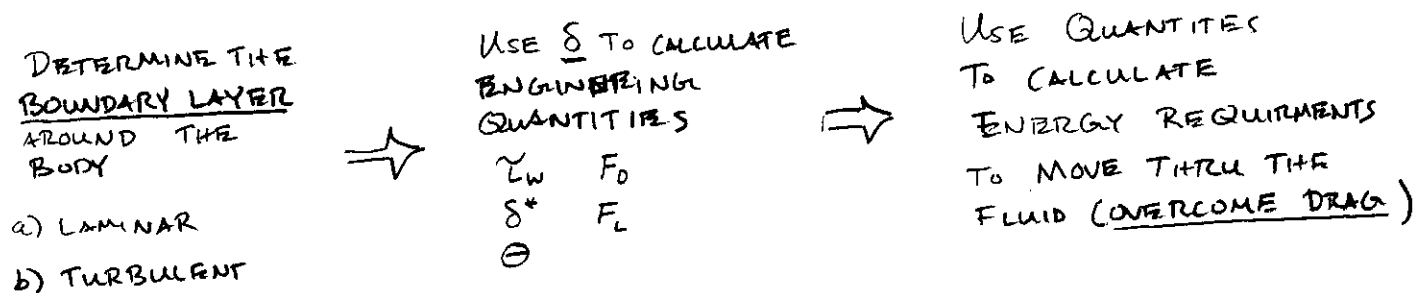 DETERMINE THE
BOUNDARY LAYER
AROUND THE
BODY
a) LAMINAR
b) TURBULENT
⇒
USE δ TO CALCULATE
ENGINEERING
QUANTITIES
τw FD
δ* FL
Θ
⇒
USE QUANTITES
TO CALCULATE
ENERGY REQUIRMENTS
TO MOVE THRU THE
FLUID (OVERCOME DRAG)